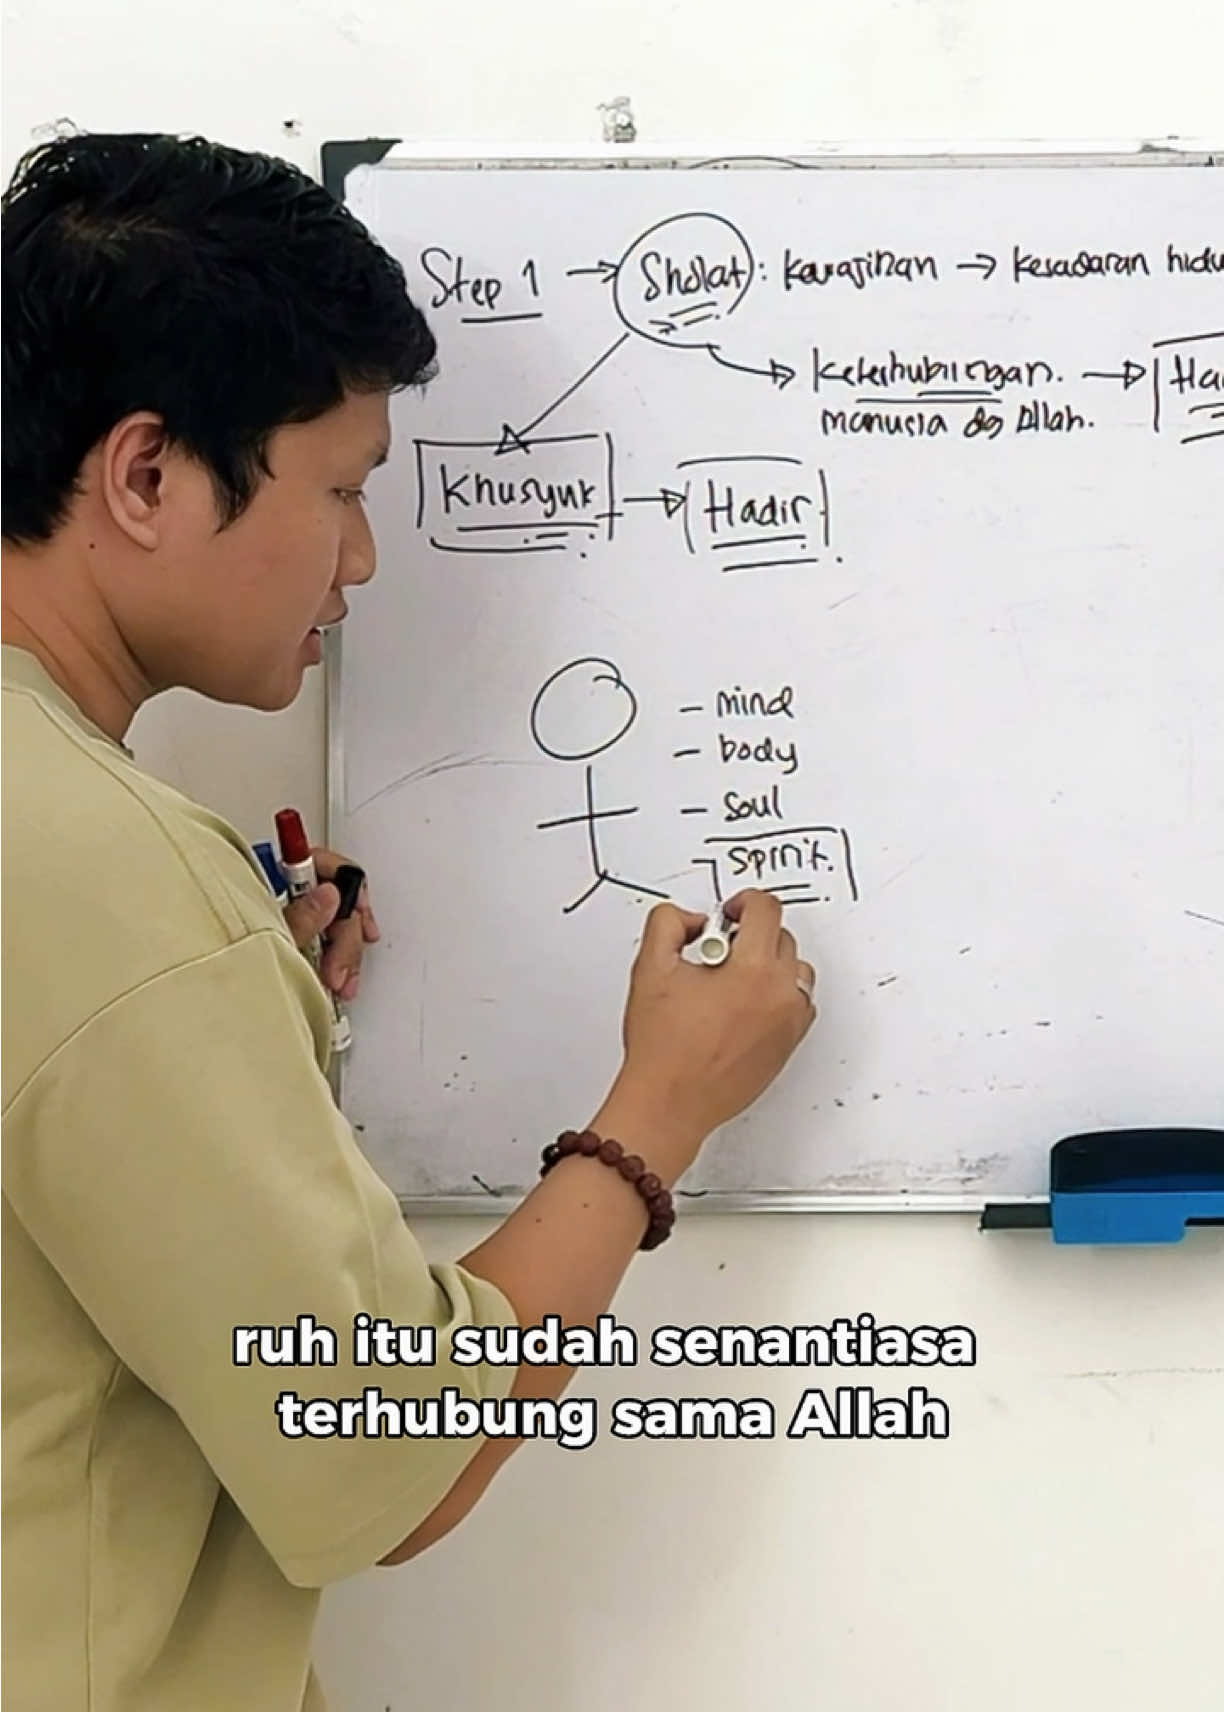 Step 1 → Sholat : kerajinan → kesadaran hidu
keterhubungan. → Ha
manusia dg Allah.
Khusyuk → Hadir
- mind
- body
- soul
spirit.
ruh itu sudah senantiasa
terhubung sama Allah